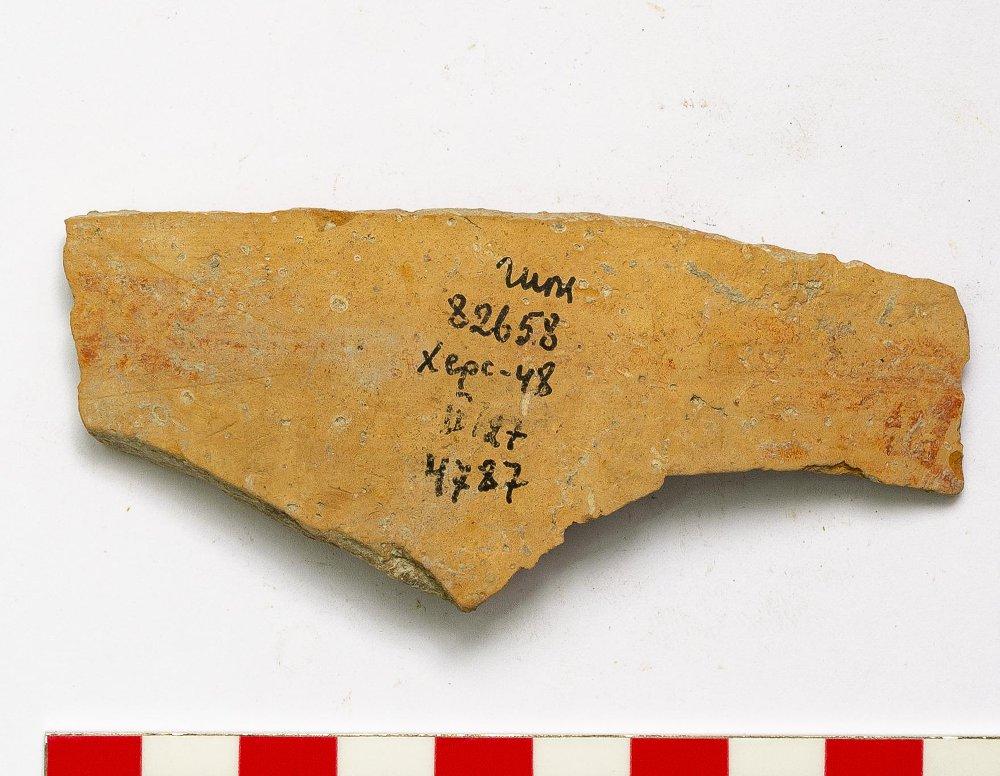 гим
82658
Херс-48
II/27
4787